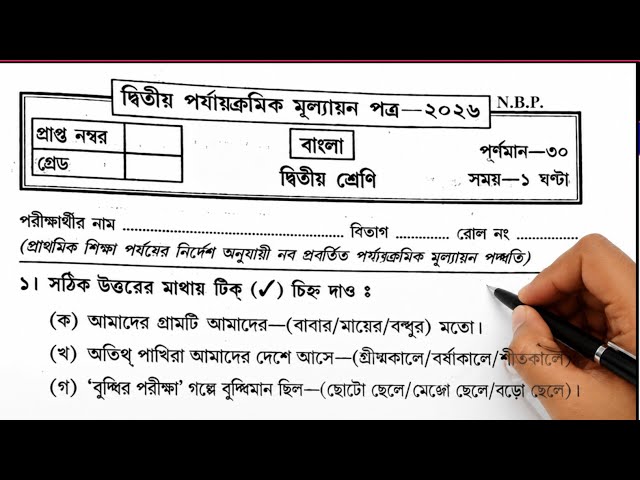 দ্বিতীয় পর্যায়ক্রমিক মূল্যায়ন পত্র—২০২৬
N.B.P.
প্রাপ্ত নম্বর
গ্রেড
বাংলা
দ্বিতীয় শ্রেণি
পূর্ণমান—৩০
সময়—১ ঘণ্টা
পরীক্ষার্থীর নাম .................................................... বিভাগ ............ রোল নং ..............
(প্রাথমিক শিক্ষা পর্ষদের নির্দেশ অনুযায়ী নব প্রবর্তিত পর্যায়ক্রমিক মূল্যায়ন পদ্ধতি)
১। সঠিক উত্তরের মাথায় টিক্ (✓) চিহ্ন দাও ঃ
(ক) আমাদের গ্রামটি আমাদের—(বাবার/মায়ের/বন্ধুর) মতো।
(খ) অতিথ্ পাখিরা আমাদের দেশে আসে—(গ্রীষ্মকালে/বর্ষাকালে/শীতকালে)
(গ) ‘বুদ্ধির পরীক্ষা’ গল্পে বুদ্ধিমান ছিল—(ছোটো ছেলে/মেজো ছেলে/বড়ো ছেলে)।